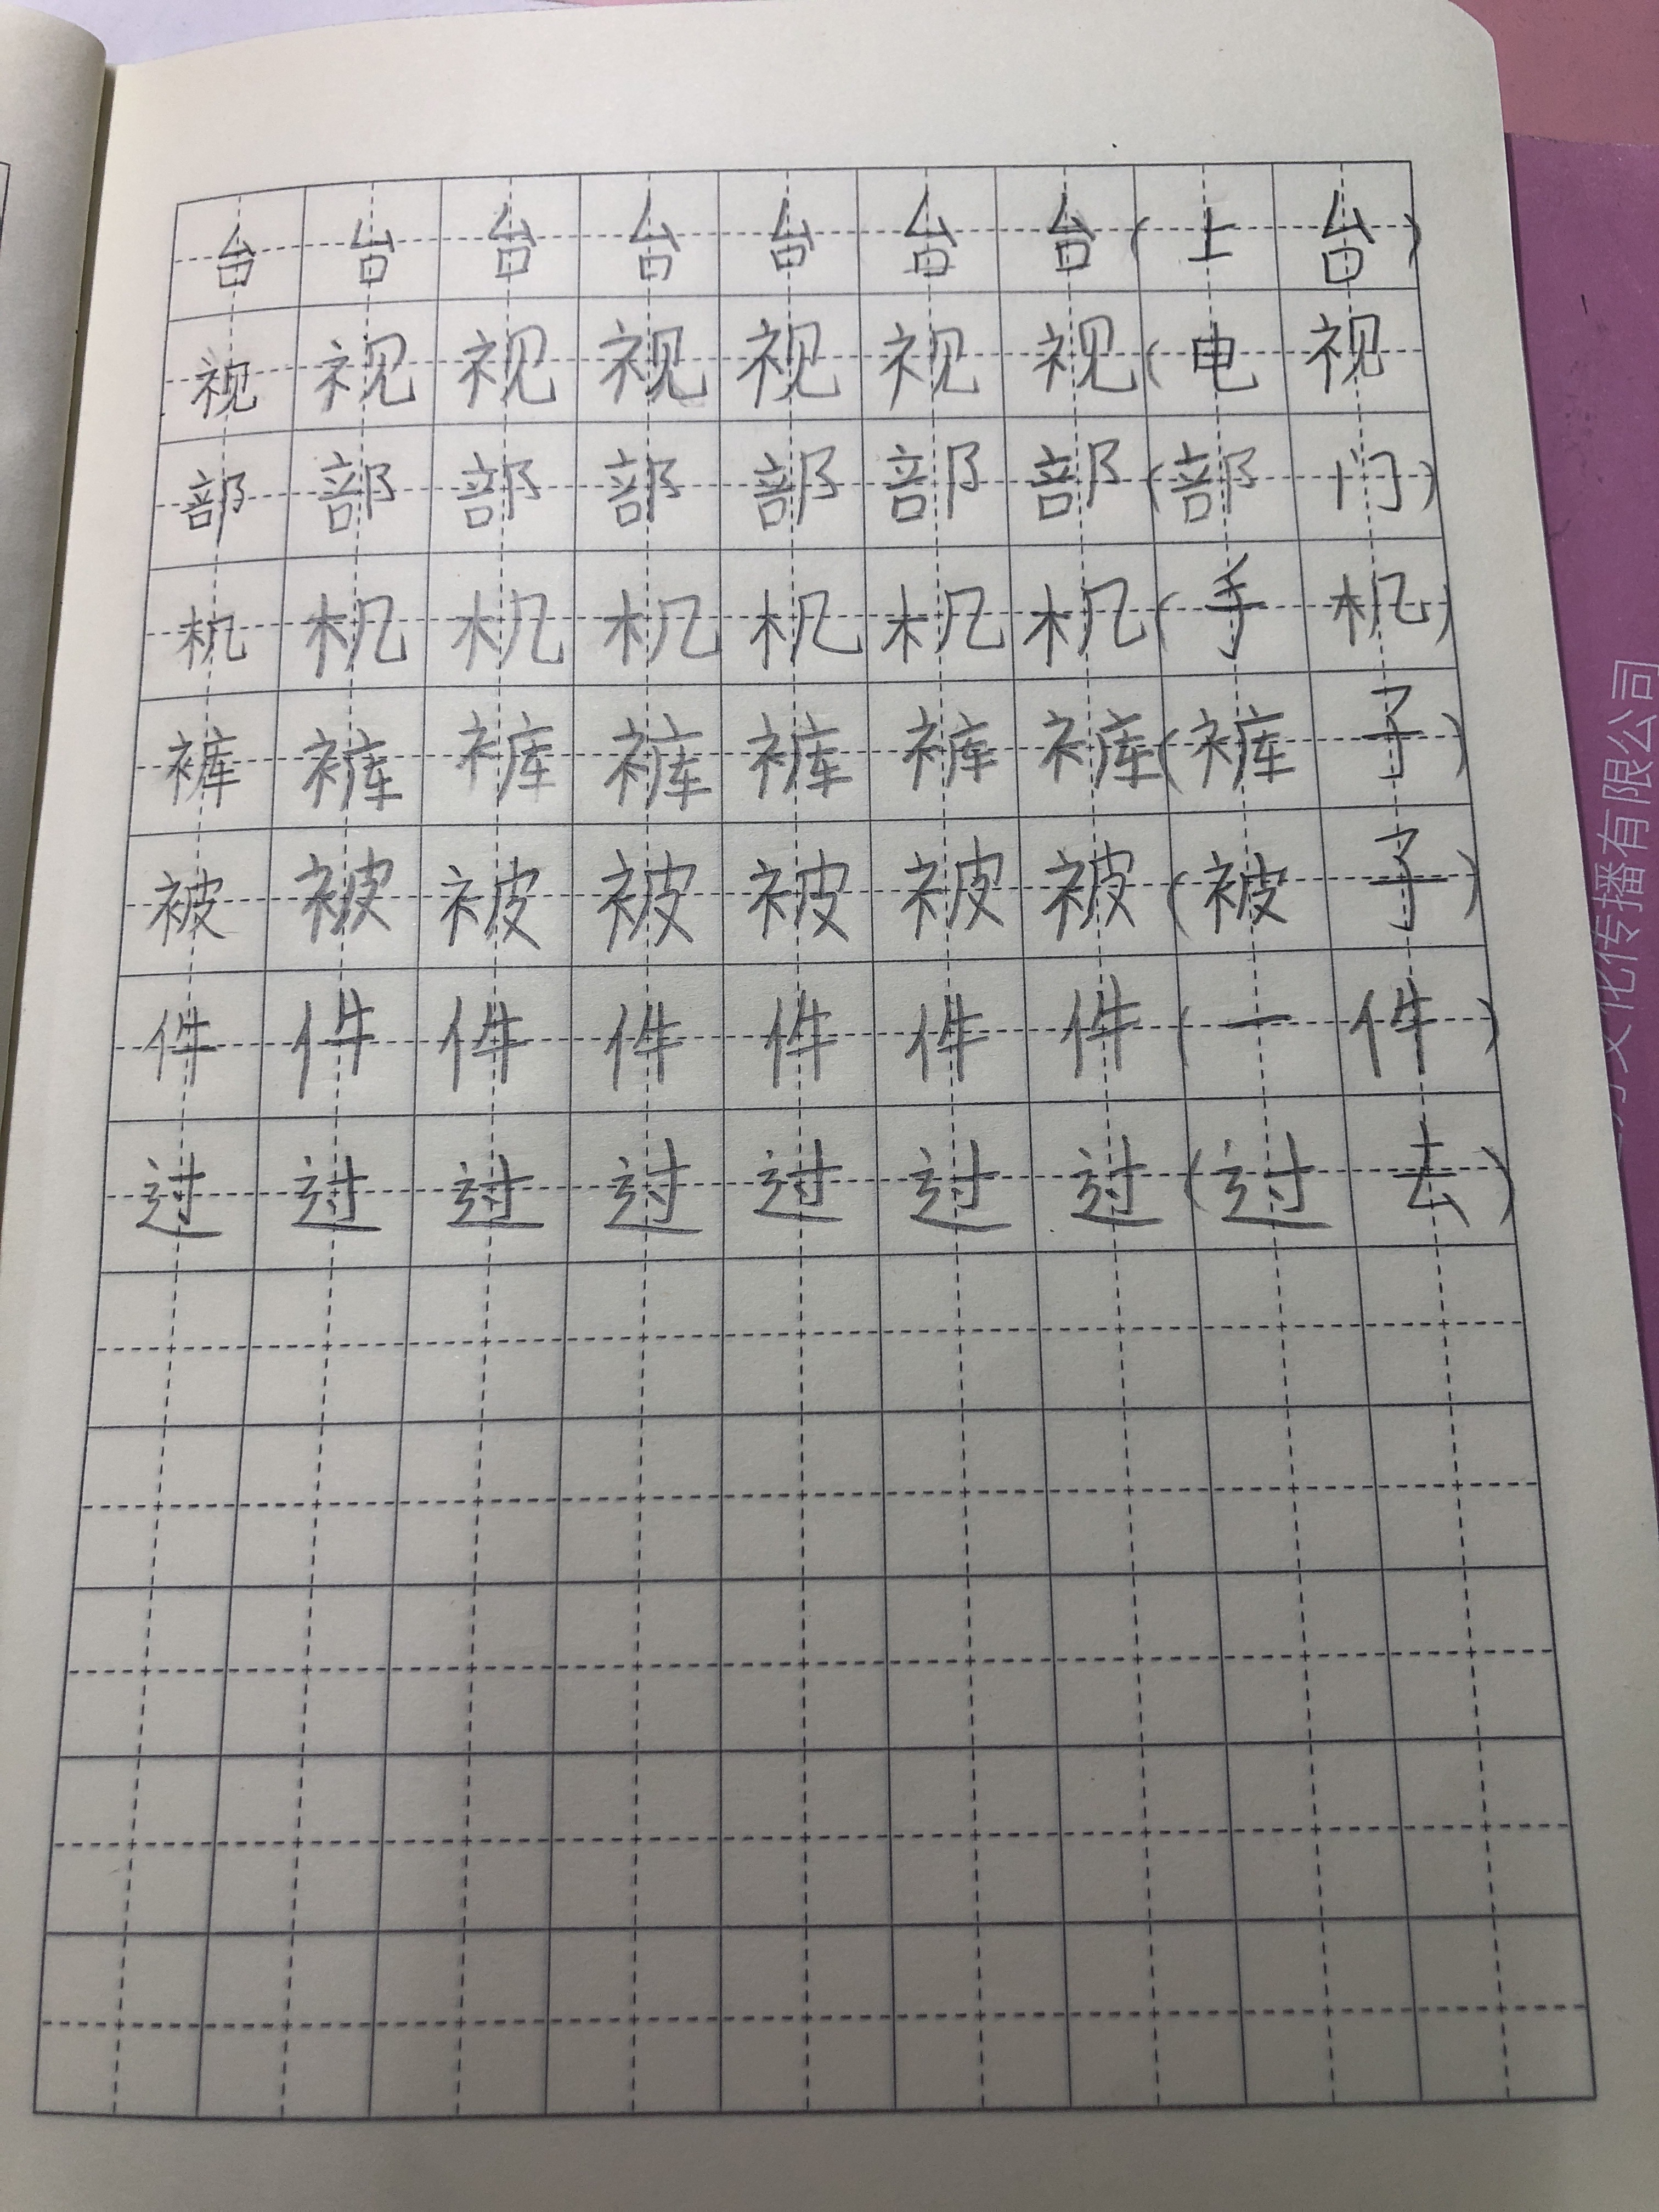 台台台台台台台(上台)
视视视视视视视(电视
部部部部部部部(部门)
机机机机机机机(手机)
裤裤裤裤裤裤裤(裤子)
被被被被被被被(被子)
件件件件件件件(一件)
过过过过过过过(过去)
文化传播有限公司